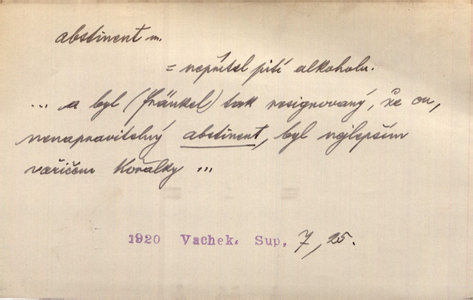 abstinent m.
= nepřítel pití alkoholu.
... a byl (Fränkel) tak resignovaný, že on,
nenapravitelný abstinent, byl nejlepším
vařičem kořalky ...
1920 Vachek, Sup, 7, 25.